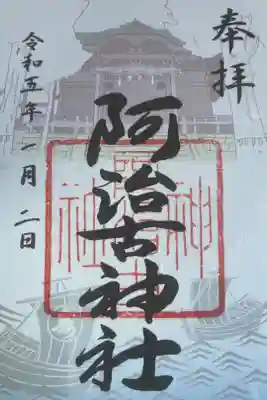 奉拝
阿治古神社
令和五年一月二日